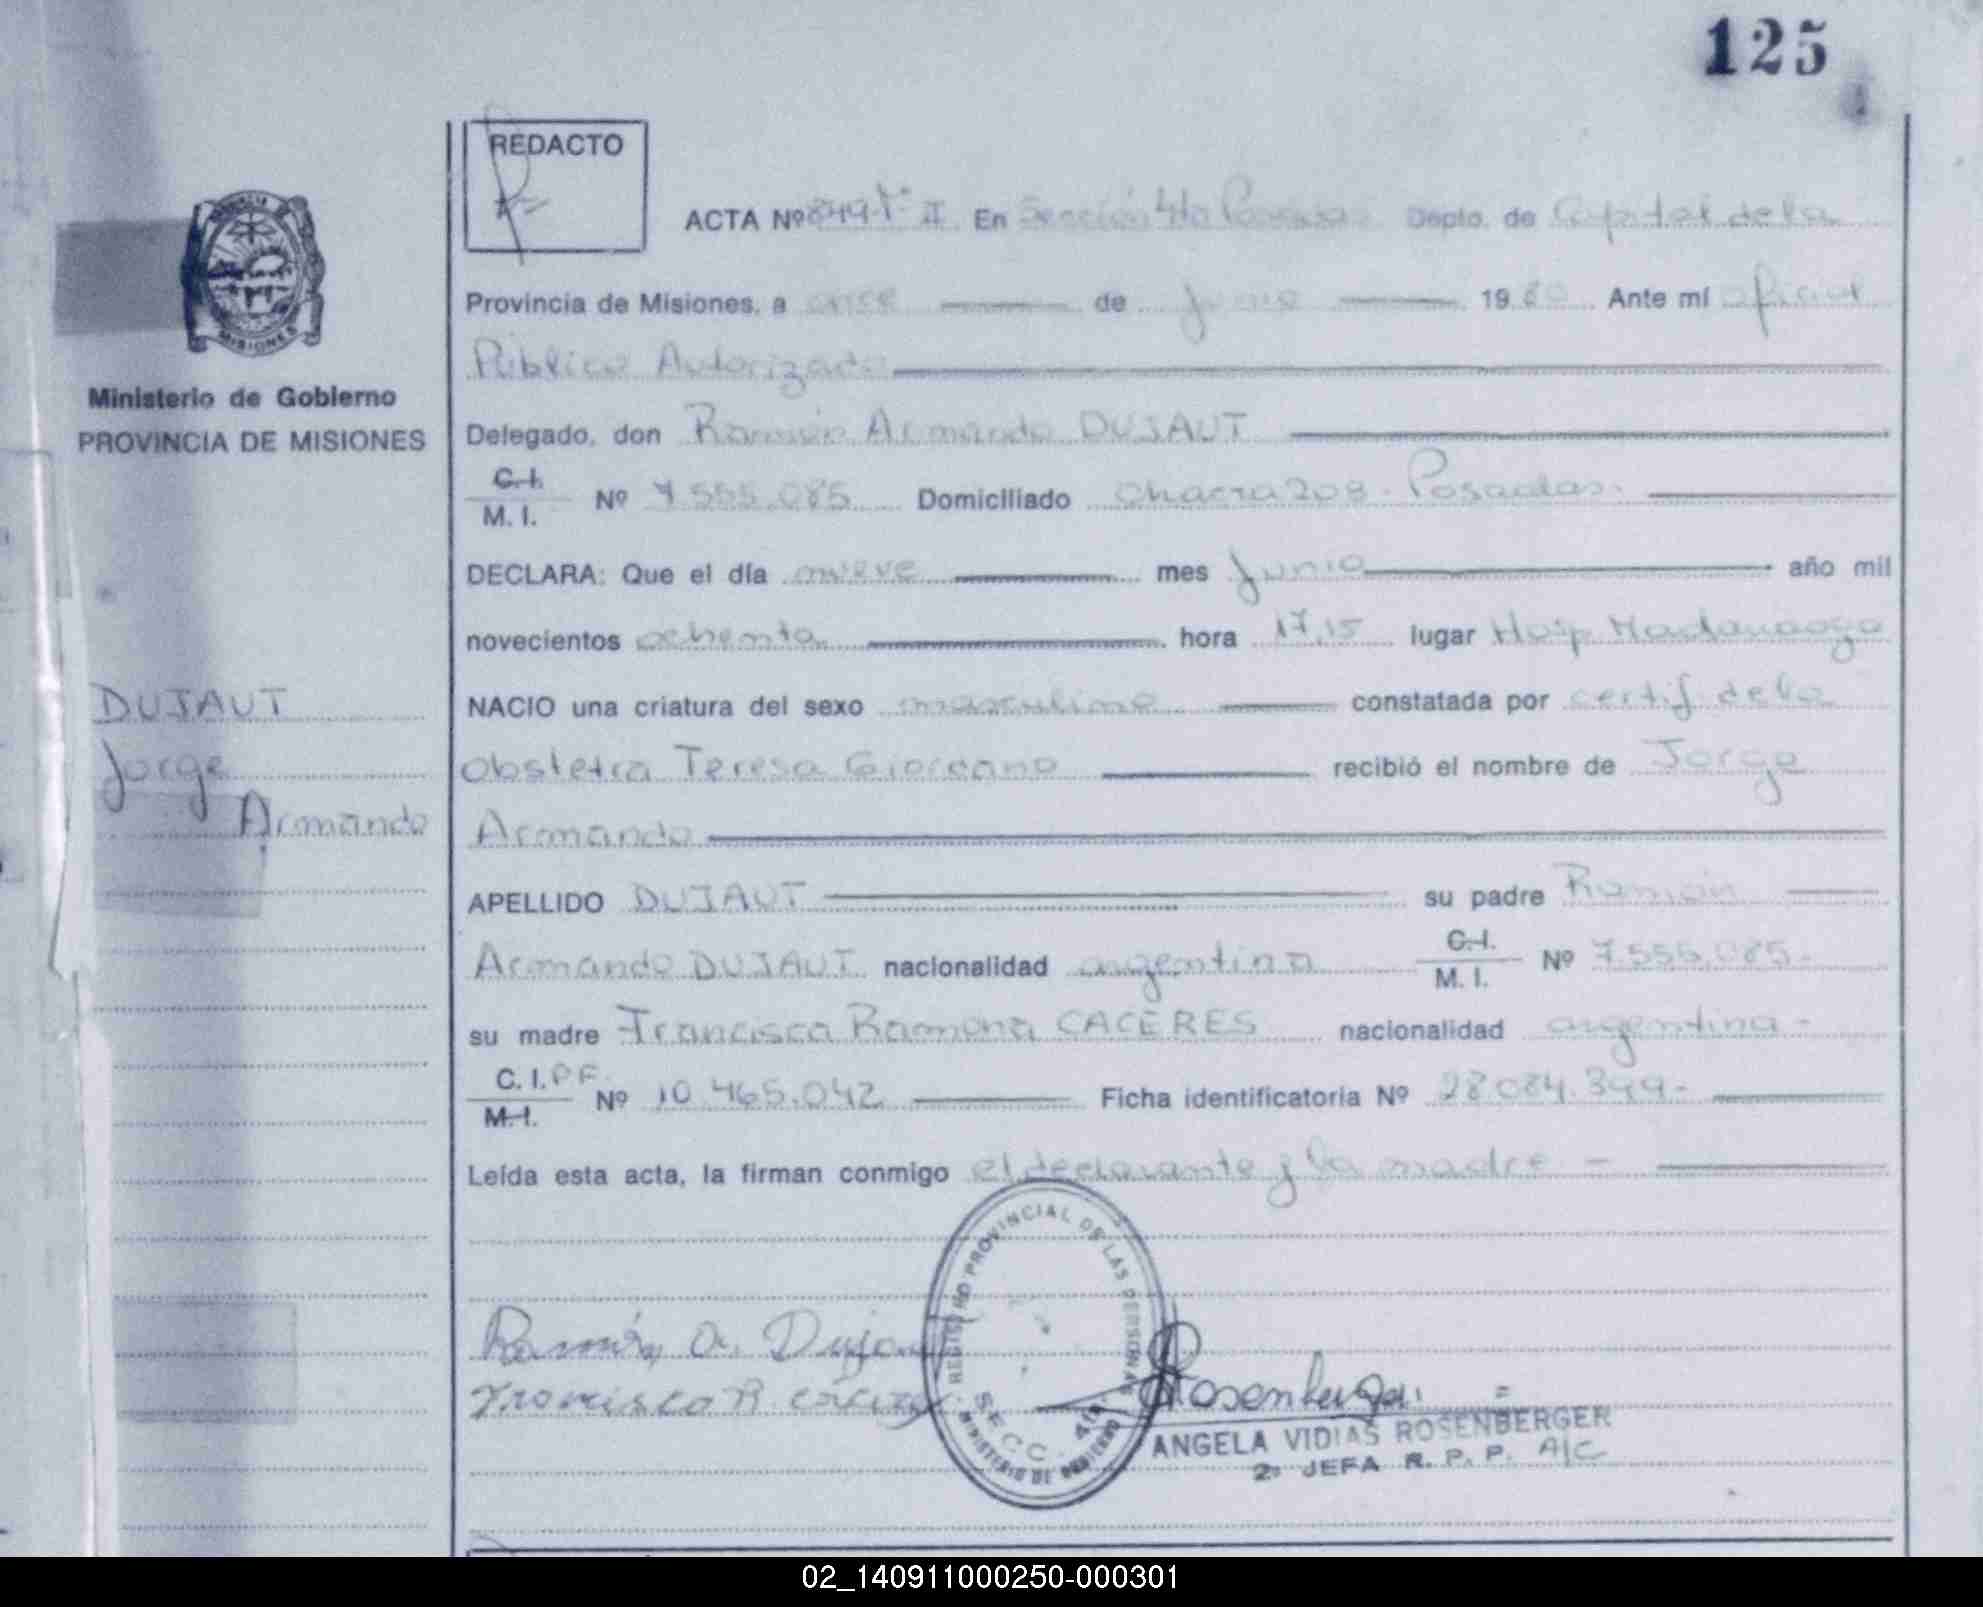 125
REDACTO
ACTA Nº 849 Tº II En Sección 4ta Posadas Depto. de Capital de la
Provincia de Misiones, a once de junio 1980 Ante mí oficial
Público Autorizado
Ministerio de Gobierno
PROVINCIA DE MISIONES
Delegado, don Ramón Armando DUJAUT
C.I.
M. I. Nº 7.555.085 Domiciliado Chacra 208. Posadas.
DECLARA: Que el día nueve mes Junio año mil
novecientos ochenta hora 17,15 lugar Hosp. Madariaga
DUJAUT
Jorge
Armando
NACIO una criatura del sexo masculino constatada por certif de la
obstetra Teresa Giordano recibió el nombre de Jorge
Armando
APELLIDO DUJAUT su padre Ramón
Armando DUJAUT nacionalidad argentina C.I. M. I. Nº 7.555.085.
su madre Francisca Ramona CACERES nacionalidad argentina -
C. I. P F. M.I. Nº 10.465.042 Ficha identificatoria Nº 28.084.399-
Leída esta acta, la firman conmigo el declarante y la madre -
REGISTRO PROVINCIAL DE LAS PERSONAS
SECC. 4ta
MINISTERIO DE GOBIERNO
Ramón A. Dujaut
Francisca R. Caceres
Rosenberger
ANGELA VIDIAS ROSENBERGER
2ª JEFA R. P. P. A/C
MISIONES
02_140911000250-000301